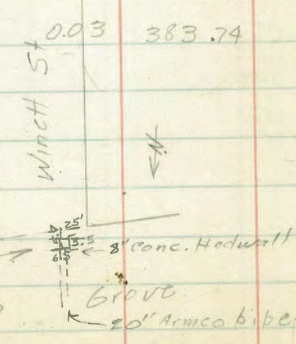 0.03 383.74
Winett St
N
8" Conc. Hedwall
Grove
20" Armco pipe